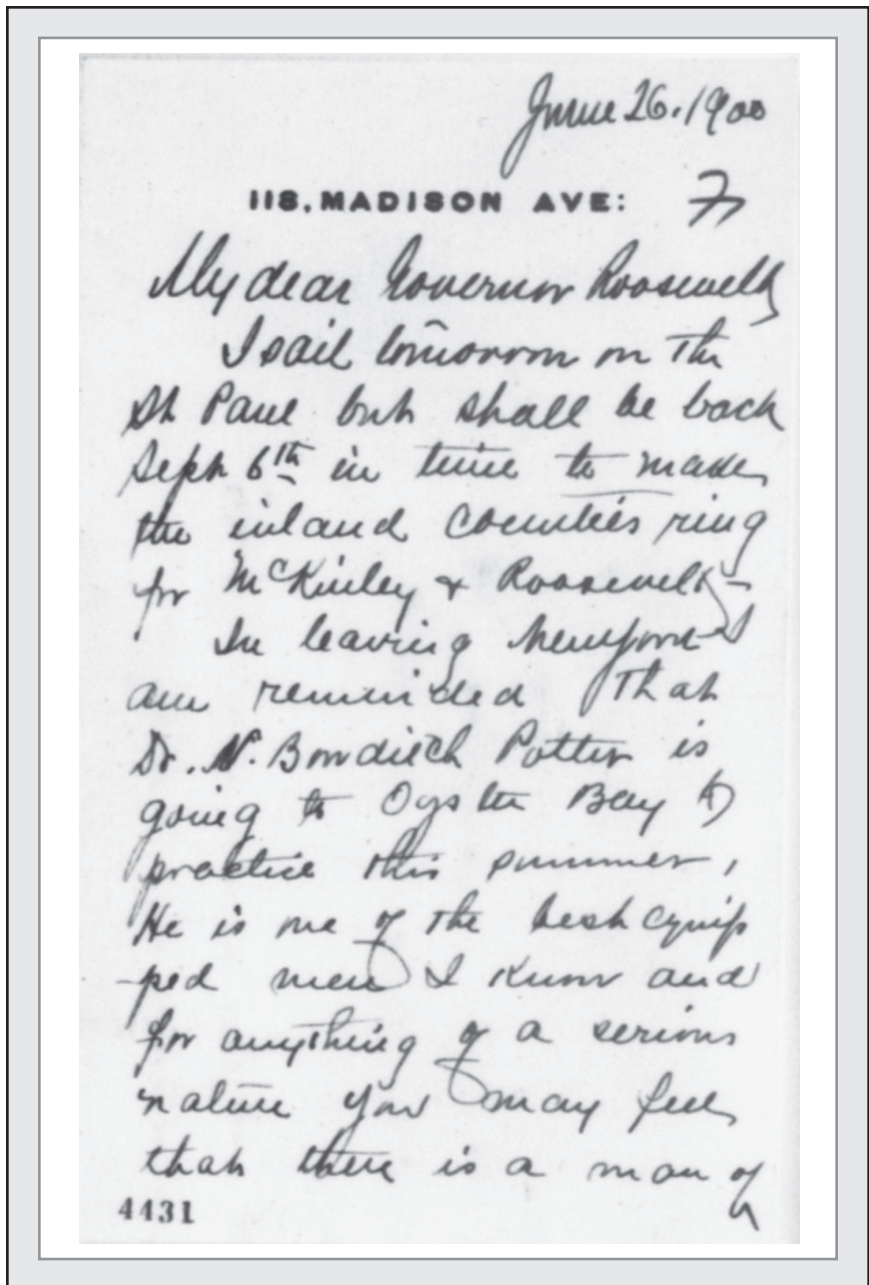 June 26. 1900
118, MADISON AVE:
7
My dear Governor Roosevelt
I sail tomorrow on the
St Paul but shall be back
Sept 6th in time to make
the inland counties ring
for McKinley & Roosevelt -
In leaving I
am reminded that
Dr. N. Bowditch Potter is
going to Oyster Bay to
practice this summer,
He is one of the best equip
-ped men I know and
for anything of a serious
nature you may feel
that there is a man of
4431